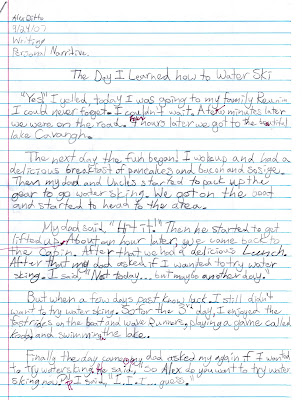 Alex Ditto
9/24/07
Writing
Personal Narrative
The Day I Learned how to Water Ski
"Yes!" I yelled today I was going to my family Reunin
I could never forget. I couldn't wait. A few minutes later
we were on the road. 4 hours later we got to the beautiful
lake Cavanagh.
The next day the fun began! I woke up and had a
delicious breakfast of pancakes and bacon and sosige.
Then my dad and Uncles started to pack up the
gear to go water skiing. We got on the boat
and started to head to the area.
My dad said, "Hit it!" Then he started to get
lifted up. About an hour later, we came back to
the Cabin. After that we had a delicious Lunch.
After that my dad asked if I wanted to try water
skiing. I said, "Not today... but maybe another day."
But when a few days past know lack. I still didn't
want to try water skiing. So for the 3rd day, I enjoyed the
fast rides on the boat and water Runners, playing a game called
and swimming the lake.
Finally the day came my dad asked my again if I wanted
to try water skiing. He said, "So Alex do you want to try water
skiing now?" I said, "I. I. I... guess."